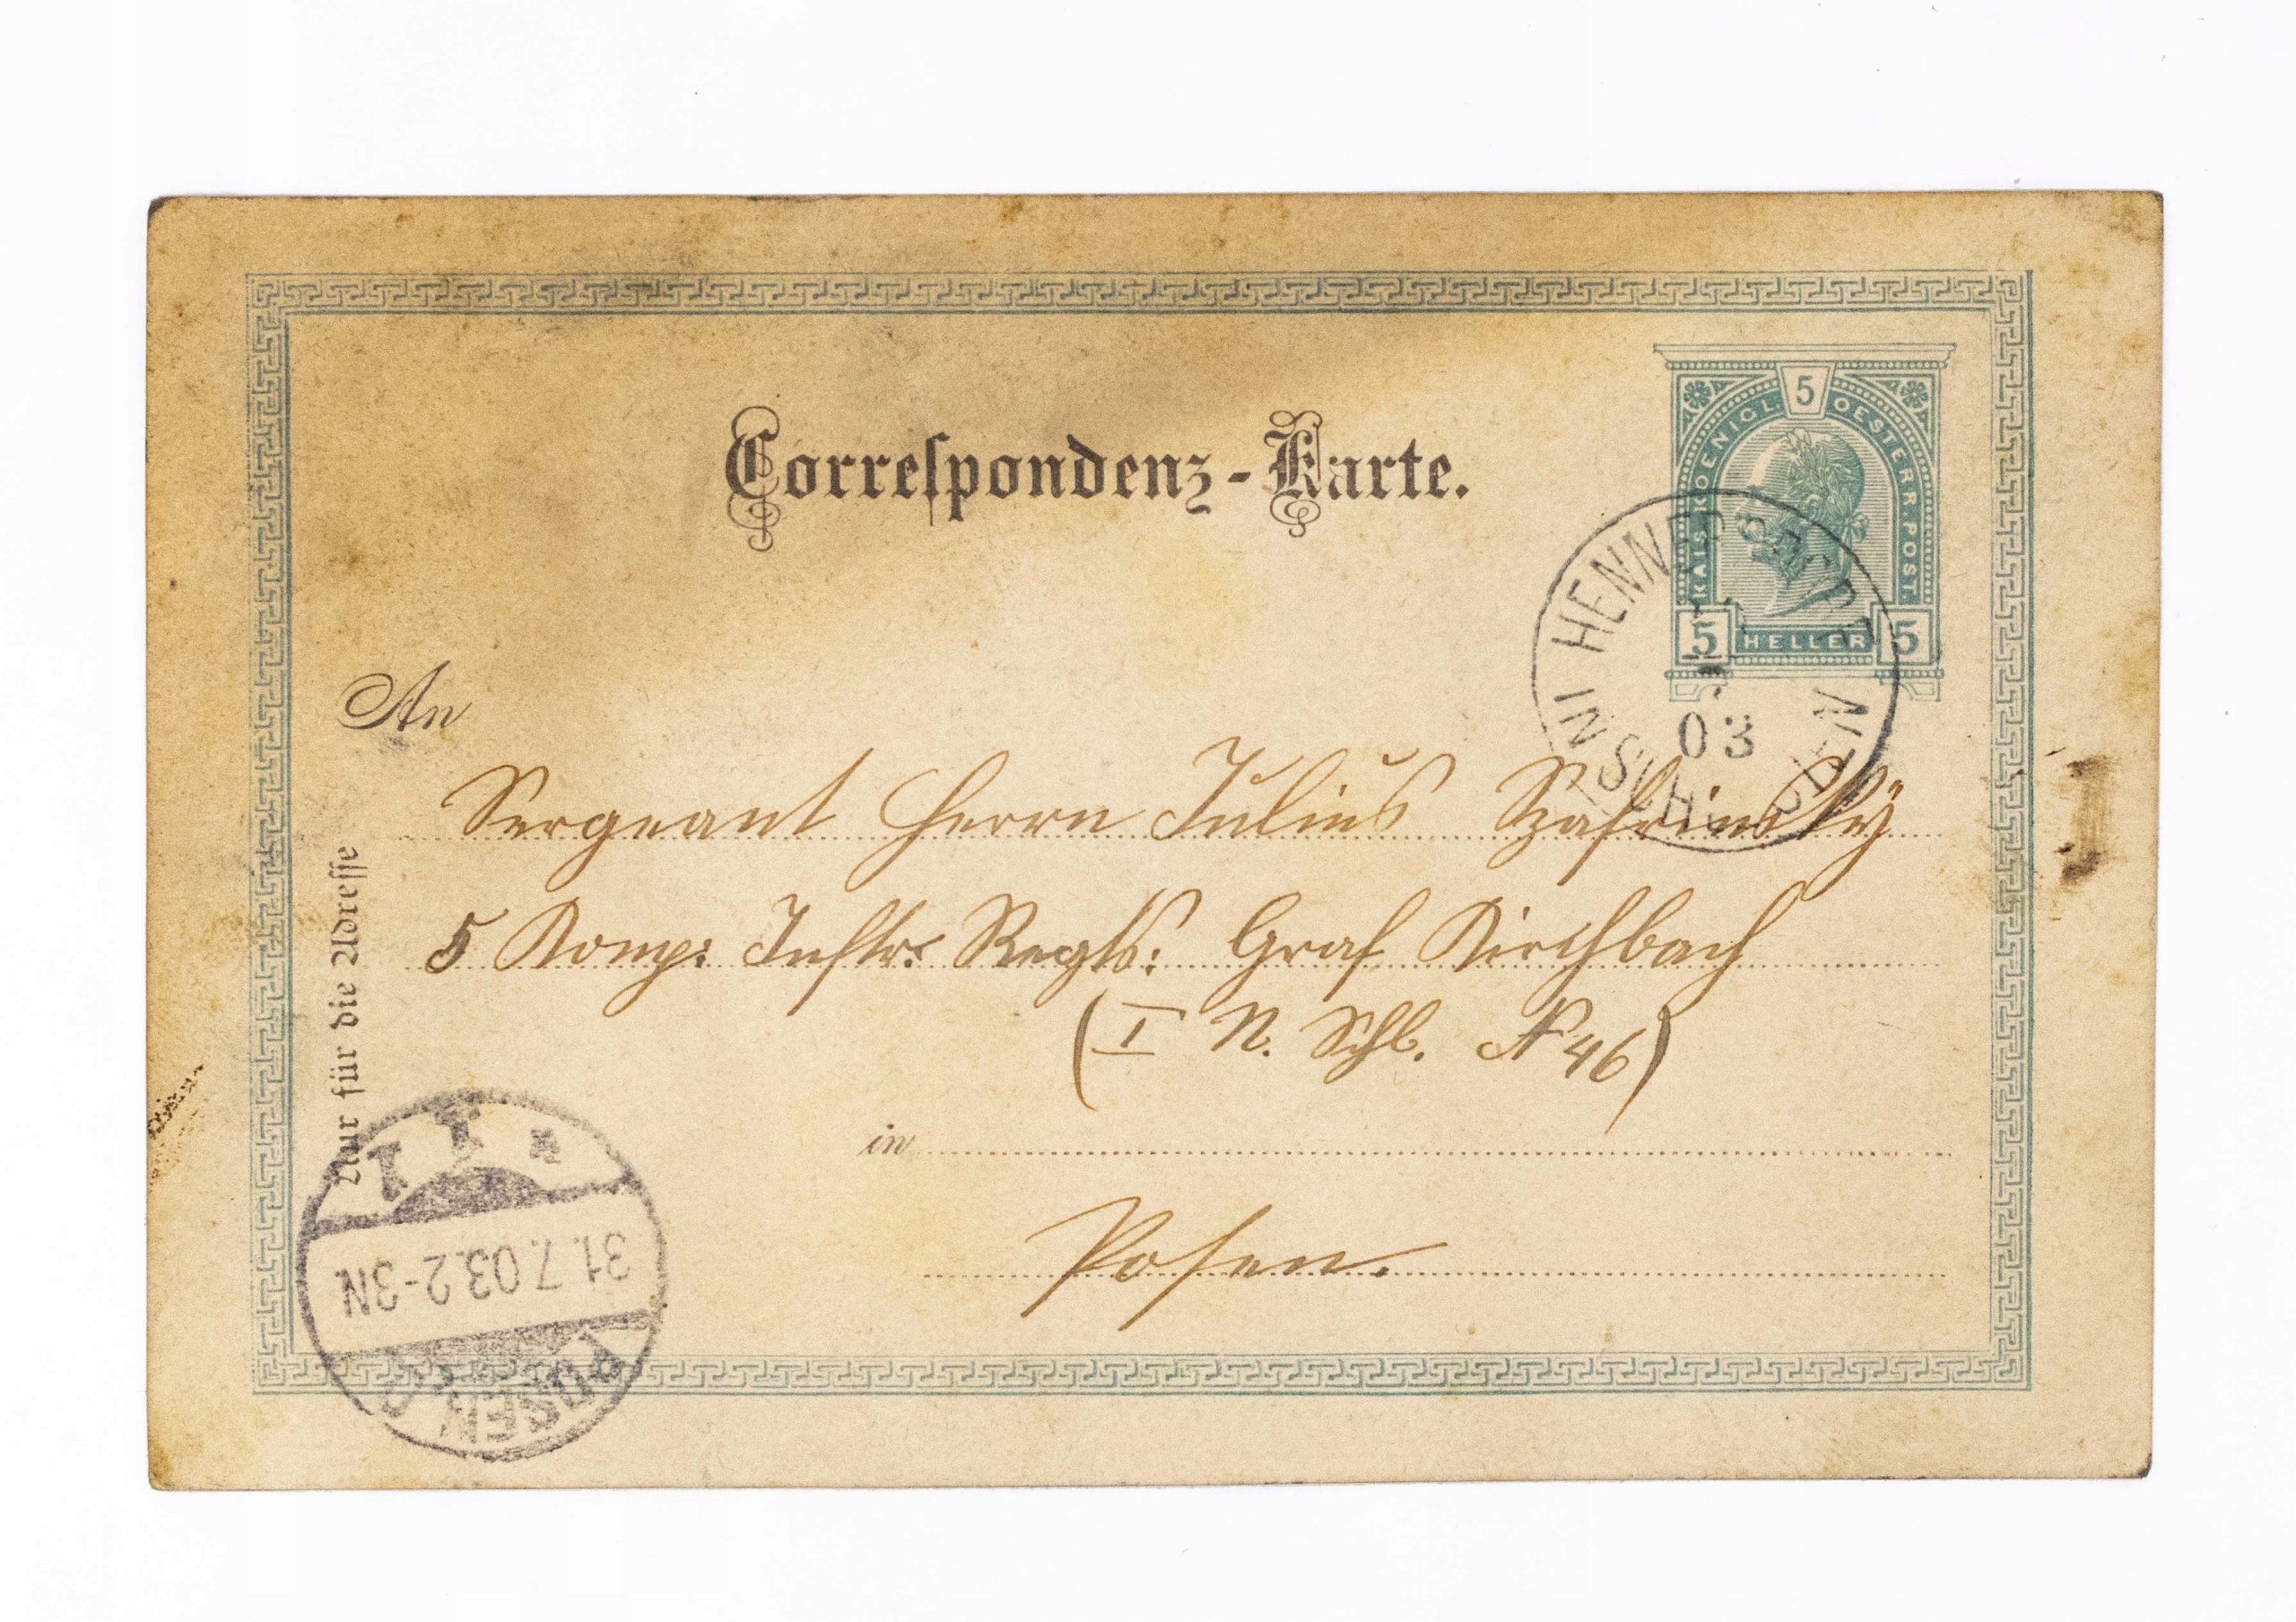 Correspondenz-Karte.
5
KAIS. KOENIGL. OESTERR. POST.
5 HELLER 5
HENNERSDORF
IN SCHLESIEN
03
An
Sergeant Herrn Julius
5 Komp: Inftr: Regts: Graf Kirchbach
(I N. Schl. № 46)
in
Posen.
Nur für die Adresse
POSEN
31.7.03.2-3N
* 1